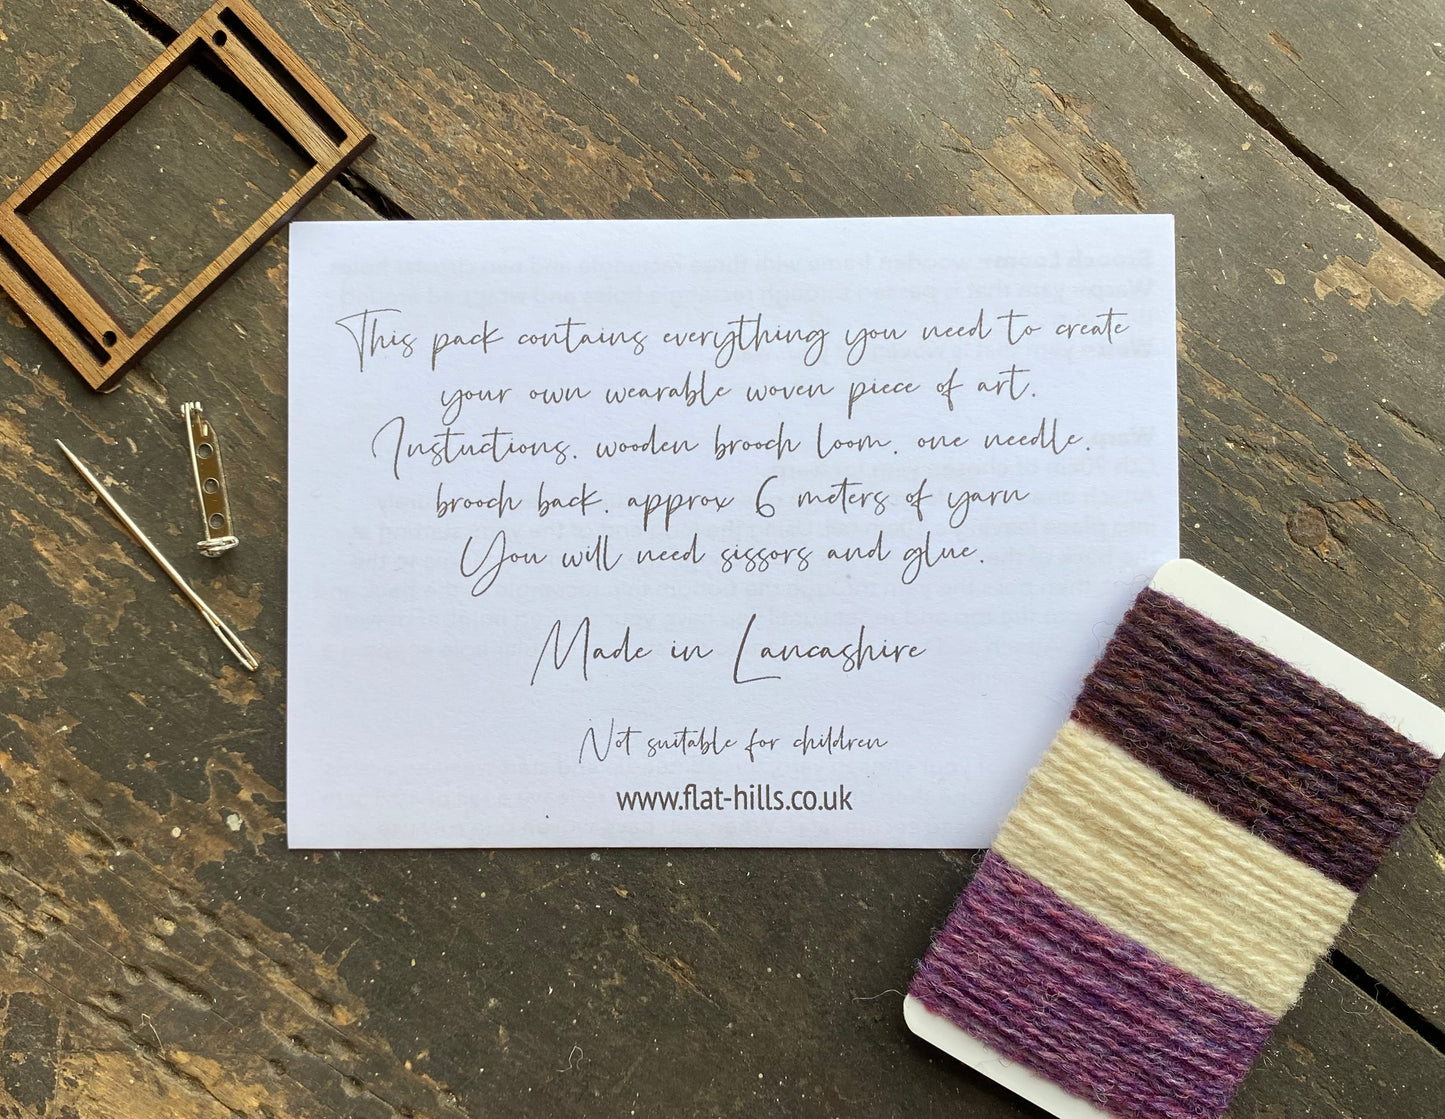 This pack contains everything you need to create
your own wearable woven piece of art.
Instuctions, wooden brooch loom, one needle,
brooch back, approx 6 meters of yarn
You will need sissors and glue.
Made in Lancashire
Not suitable for children
www.flat-hills.co.uk